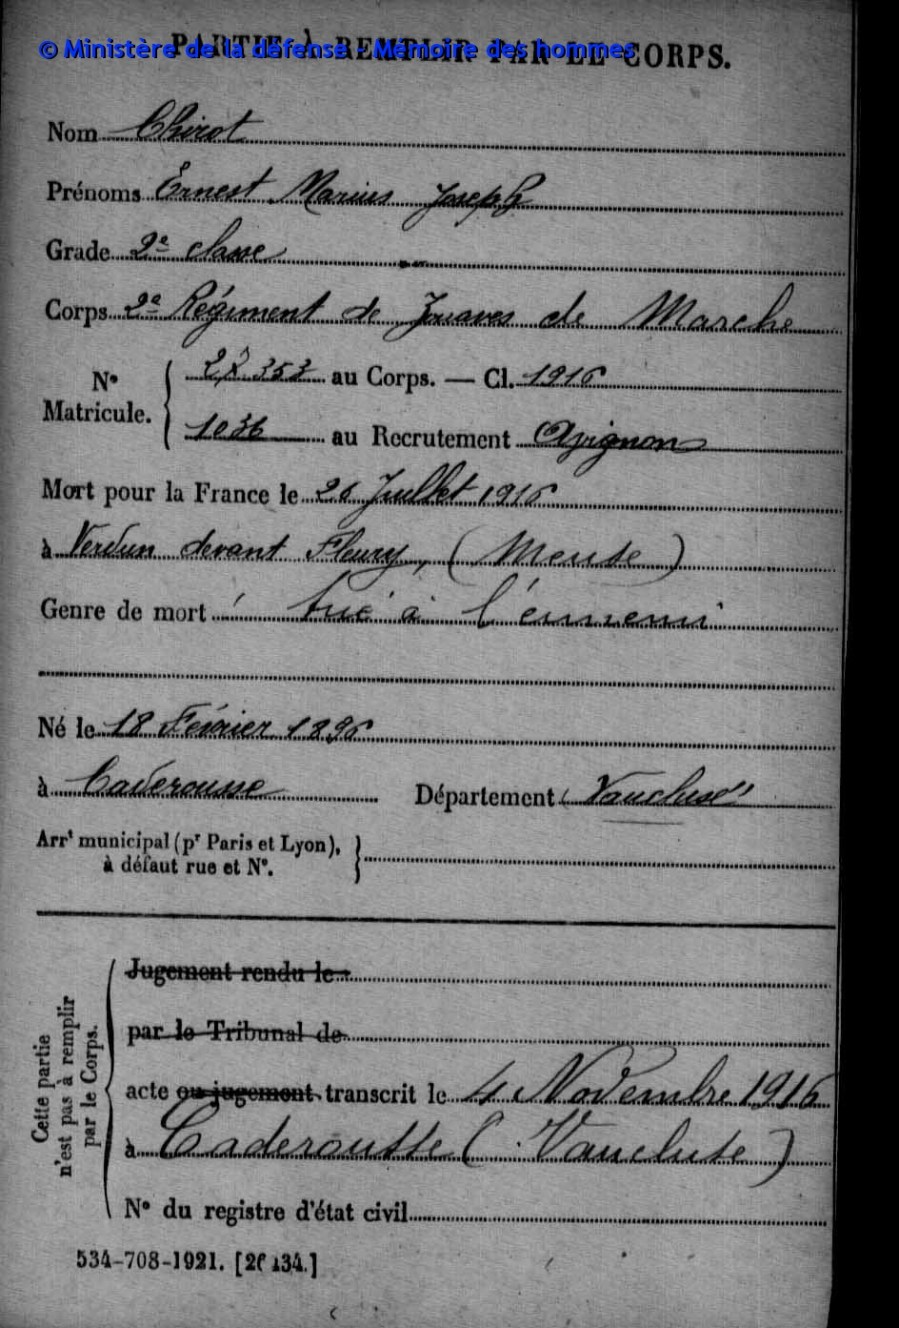 © Ministère de la défense - Mémoire des hommes
PARTIE À REMPLIR PAR LE CORPS.
Nom Chirot
Prénoms Ernest Marius Joseph
Grade 2e classe
Corps 2e Régiment de Zouaves de Marche
No Matricule. { 353 au Corps. — Cl. 1916
1036 au Recrutement Avignon
Mort pour la France le Juillet 1916
à Verdun devant Fleury, (Meuse)
Genre de mort tué à l'ennemi
Né le 18 Février 1896
à Caderousse Département Vaucluse
Arrt municipal (pr Paris et Lyon),
à défaut rue et No.
Cette partie
n'est pas à remplir
par le Corps.
Jugement rendu le
par le Tribunal de
acte ou jugement transcrit le 4 Novembre 1916
à Caderousse (Vaucluse)
No du registre d'état civil
534-708-1921.